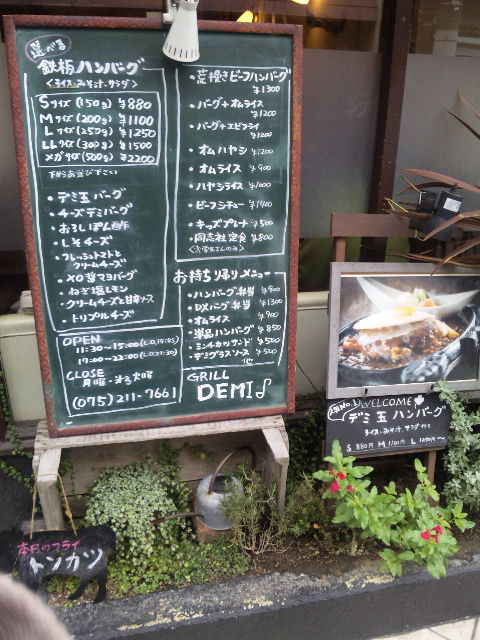 選べる
鉄板ハンバーグ
<ライス、みそ汁、サラダ>
Sサイズ (150g) ¥880
Mサイズ (200g) ¥1100
Lサイズ (250g) ¥1250
LLサイズ (300g) ¥1500
メガサイズ (500g) ¥2200
下からお選び下さい
・デミ玉バーグ
・チーズデミバーグ
・おろしぽん酢
・しそチーズ
・フレッシュトマトと
クリームチーズ
・ねぎ塩レモン
・クリームチーズと
・トリプルチーズ
OPEN
11:30~15:00 (L.O.14:45)
17:00~22:00 (L.O.21:30)
CLOSE
月曜・
(075)211-7661
・荒挽きビーフハンバーグ
¥1300
・バーグ+オムライス
¥1200
・バーグ+エビフライ
¥1200
・オムハヤシ ¥1200
・オムライス ¥900
・ハヤシライス ¥1000
・ビーフシチュー ¥1400
・キッズプレート ¥500
・同志社定食 ¥800
<大学生さんのみ>
お持ち帰りメニュー
・ハンバーグ弁当 ¥900
・DXバーグ弁当 ¥1300
・オムライス ¥900
・単品ハンバーグ ¥850
・ミンチカツサンド ¥500
・デミグラスソース ¥520
他
GRILL
DEMI
人気No.1 WELCOME
デミ玉ハンバーグ
ライス、みそ汁、サラダ付き
S 880円 M 1100円 L 1250円~
本日のフライ
トンカツ